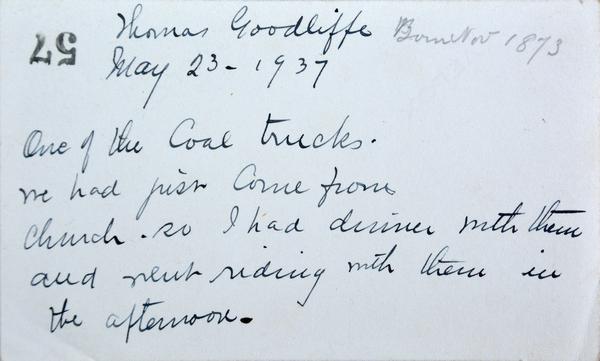 Thomas Goodliffe Born Nov 1873
57
May 23 - 1937
One of the Coal trucks.
we had just Come from
church. so I had dinner with them
and went riding with them in
the afternoon.